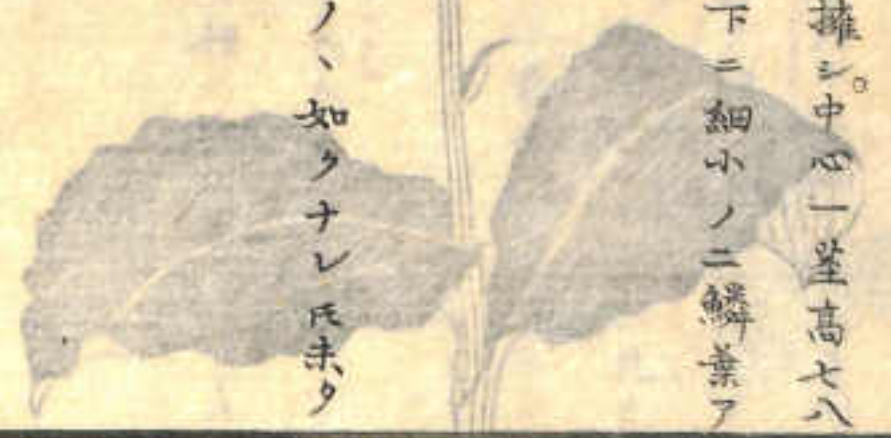 擁シ中心一莖高七八
下ニ細小ノ二鱗葉ア
ノヽ如クナレ𪜈未タ